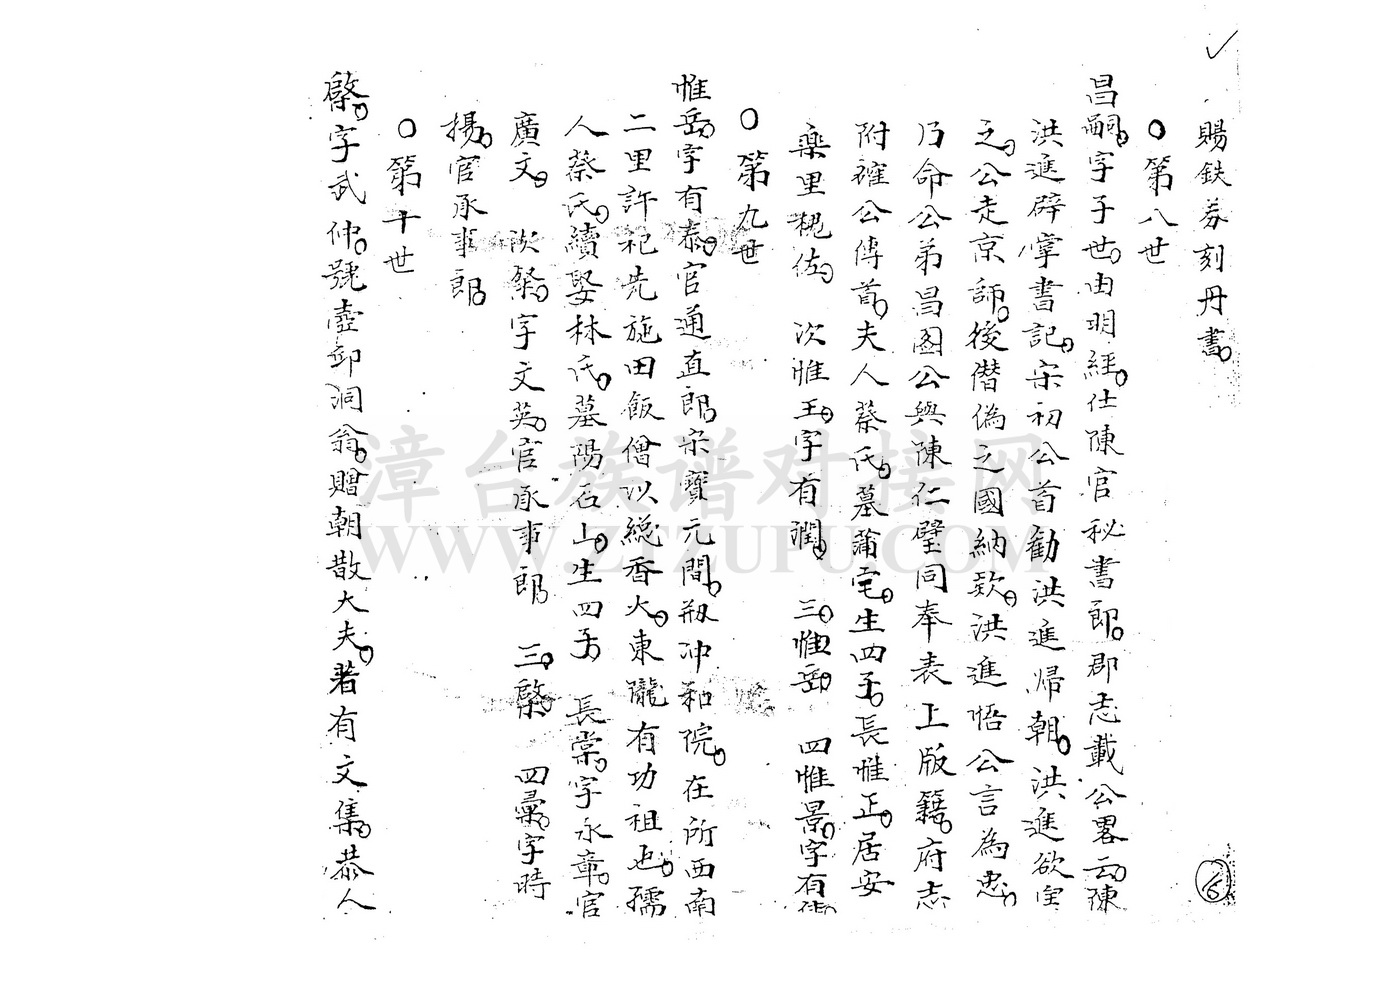 賜鉄券刻丹書。
○第八世
昌嗣。字子世。由明經。仕陳官秘書郎。郡志載公畧云。陳
洪進辟掌書記。宋初公首勸洪進帰朝。洪進欲官
之。公走京師。後僭偽之國納欵。洪進悟公言為忠。
乃命公弟昌圖公與陳仁璧同奉表上版籍。府志
附確公傳首。夫人蔡氏。墓蒲宅。生四子。長惟正。居安
楽里 佐。 次惟王。字有潤。 三。惟岳。 四惟景。字有
○第九世
惟岳。字有泰。官通直郎。宋寶元間。剏冲和院。在所西南
二里許祀先施田飯僧以総香火。東隴有功祖也。孺
人蔡氏。續娶林氏。墓陽石山。生四子。 長棠。字永章。官
廣文。 次棨。字文英。官承事郎。 三。綮。 四彙。字時
揚。官承事郎。
○第十世
綮。字武仲。號壺邱洞翁。贈朝散大夫。著有文集。恭人
6
漳台族谱对接网
WWW.ZTZUPU.COM